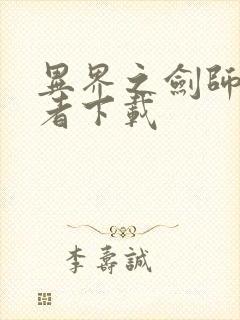 異界之劍師
者下載
李壽誠